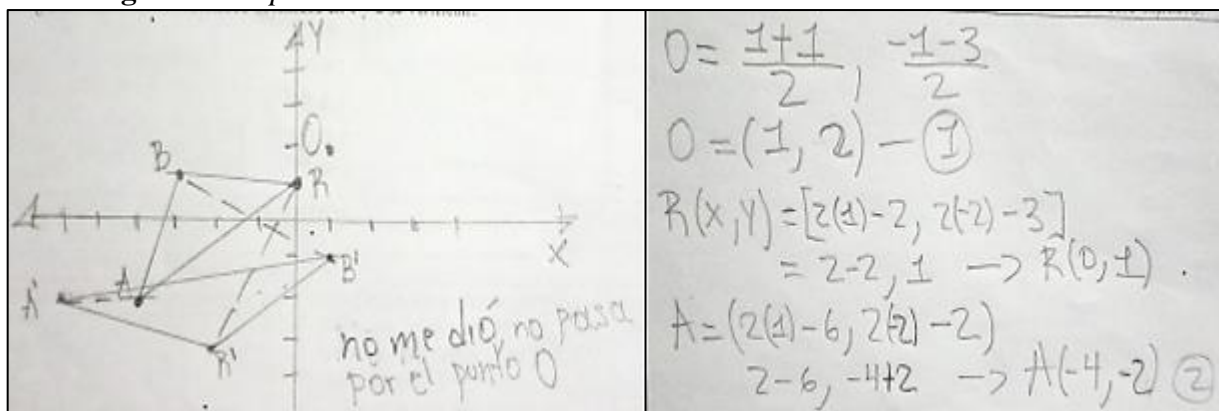 Y
O.
B
R
X
A'
A
B'
R'
no me dió, no pasa
por el punto O
O = 1+1/2, -1-3/2
O = (1, 2) - ①
R(X,Y) = [2(1)-2, 2(-2)-3]
= 2-2, 1 → R(0,1).
A = (2(1)-6, 2(-2)-2)
2-6, -4+2 → A(-4,-2) ②